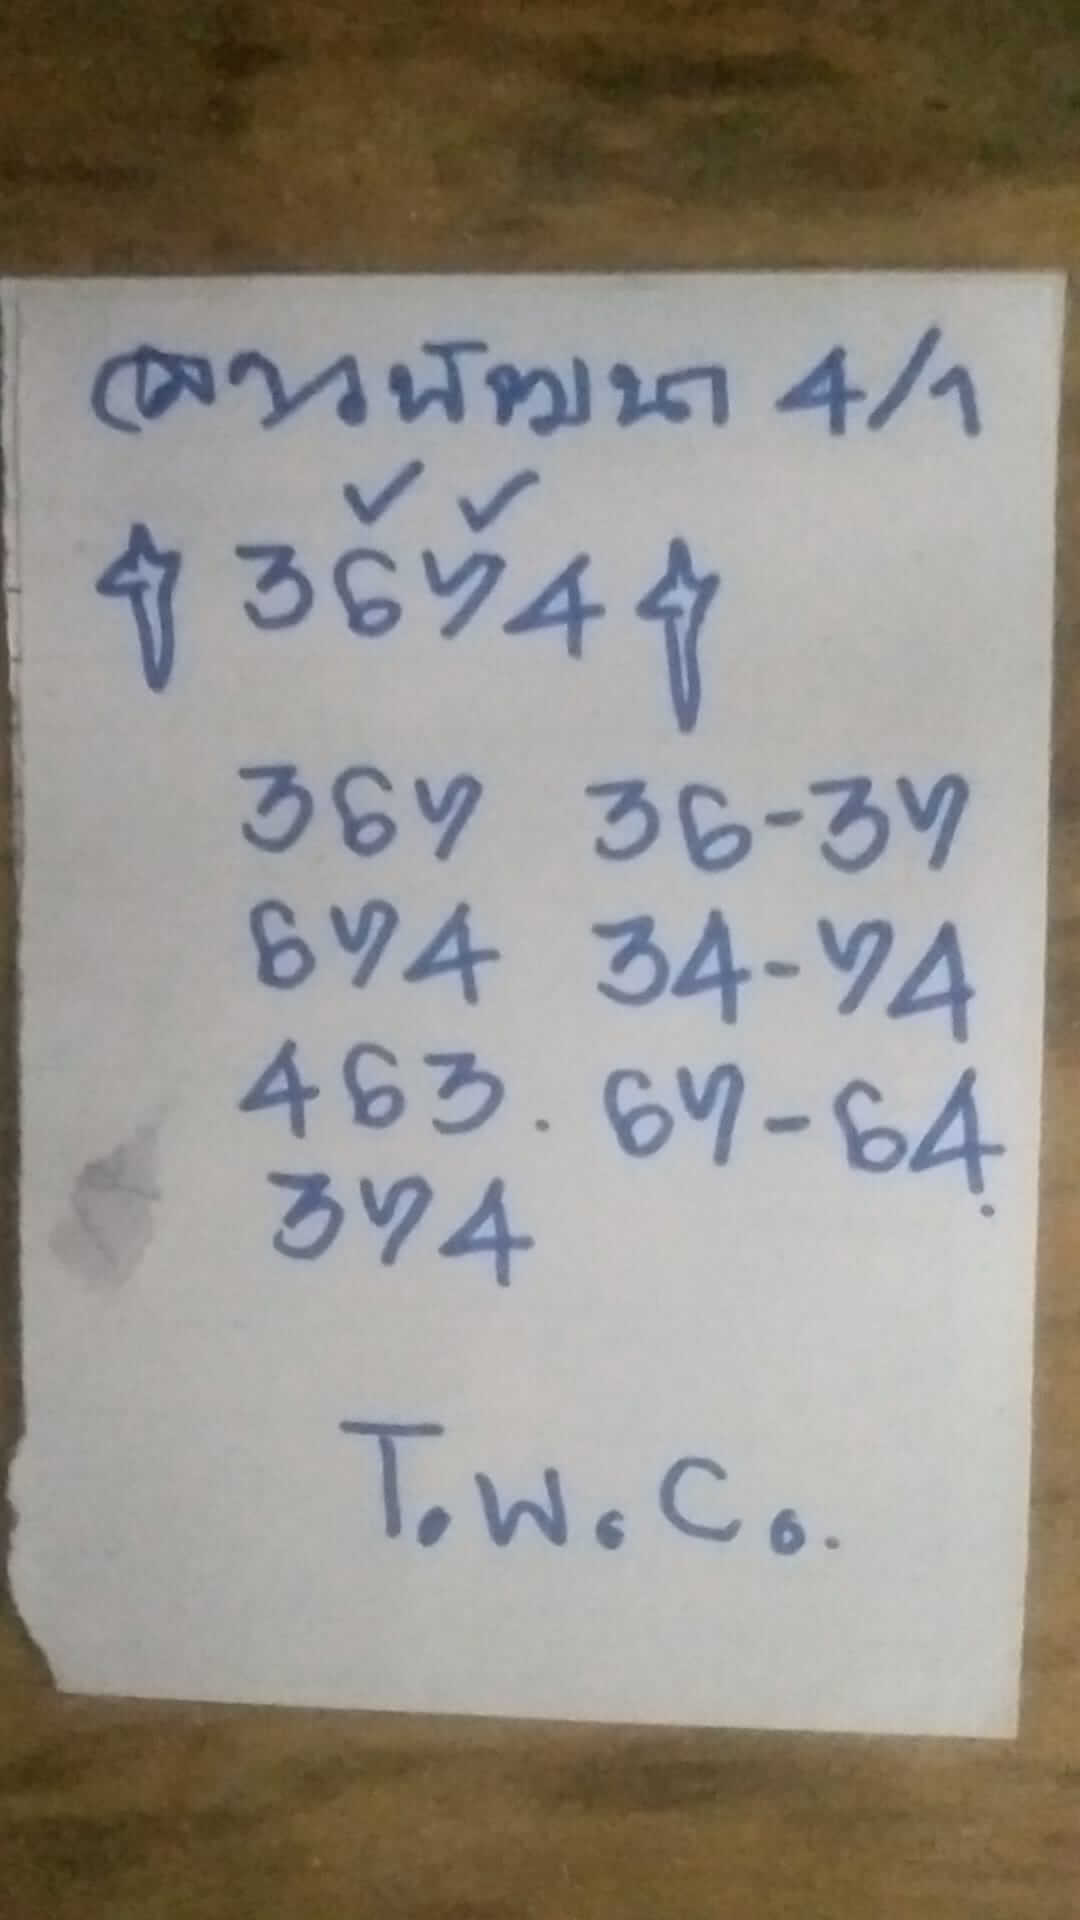 ลาวพัฒนา 4/1
3674
367 36-37
674 34-74
463. 67-64.
374
T.W.C.